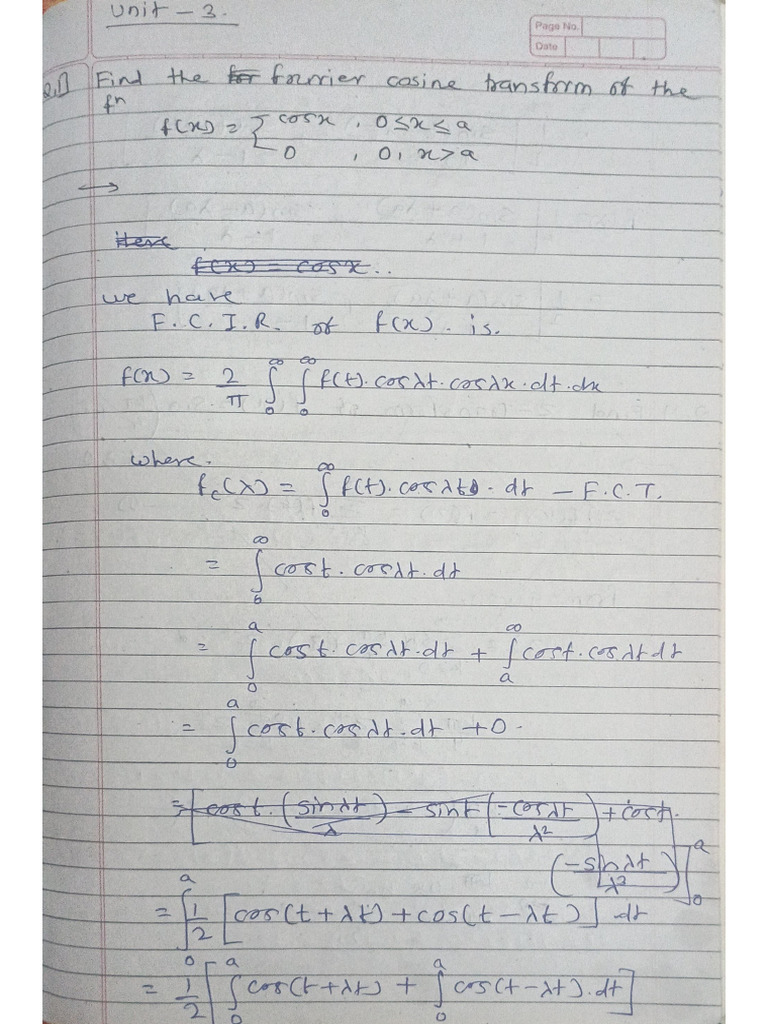 Unit - 3.
Page No.
Date
Q.1] Find the fourier cosine transform of the
fn
f(x) = { cosx , 0≤x≤a
0 , 0, x>a
→
Here
f(x) = cosx..
we have
F.C.I.R. of f(x). is.
f(x) = 2/π ∫₀^∞ ∫₀^∞ f(t). cosλt. cosλx. dt. dx
where.
fc(λ) = ∫₀^∞ f(t). cosλt. dt - F.C.T.
= ∫₀^∞ cost. cosλt. dt
= ∫₀^a cost. cosλt. dt + ∫ₐ^∞ cost. cosλt dt
= ∫₀^a cost. cosλt. dt + 0.
= [cost. (sinλt/λ) - sint (-cosλt/λ²) + cost.
(-sinλt/λ²)]₀^a
= ∫₀^a 1/2 [cos(t+λt) + cos(t-λt)] dt
= 1/2 [∫₀^a cos(t+λt) + ∫₀^a cos(t-λt). dt]